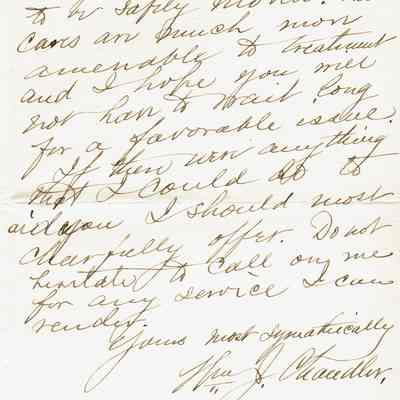 to be safely moved. The
cases are much more
amenable to treatment
and I hope you will
not have to wait long
for a favorable issue.
If there were anything
that I could do to
aid you I should most
cheerfully offer. Do not
hesitate to call on me
for any service I can
render.
Yours most sympathically
Wm J. Chandler.